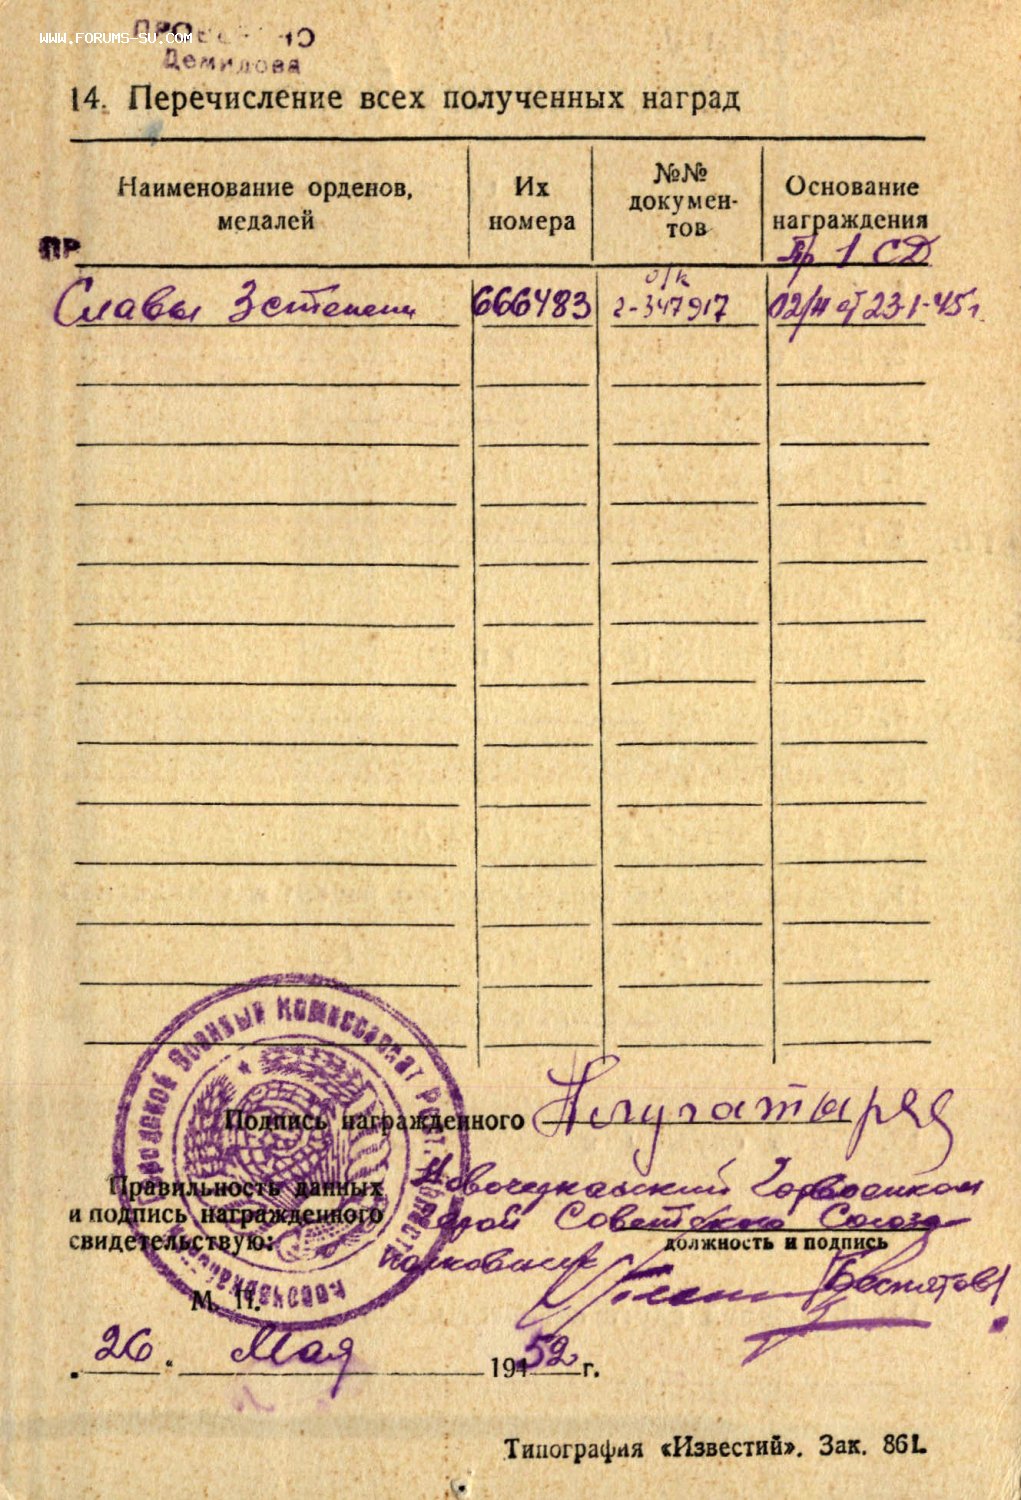 www.forums-su.com
Демидова
14. Перечисление всех полученных наград
Наименование орденов, медалей
Их номера
№№ документов
Основание награждения
ПР
Пр 1 СД
Славы 3 степени 666483 о/к 2-347917 02/н от 23-1-45 г.
Подпись награжденного
Правильность данных
и подпись награжденного
свидетельствую:
Новочеркасский Горвоенком
Герой Советского Союза
должность и подпись
полковник
(Беспятов)
М. П.
Военный Комиссариат
26 " Мая 1952 г.
Типография «Известий». Зак. 861.